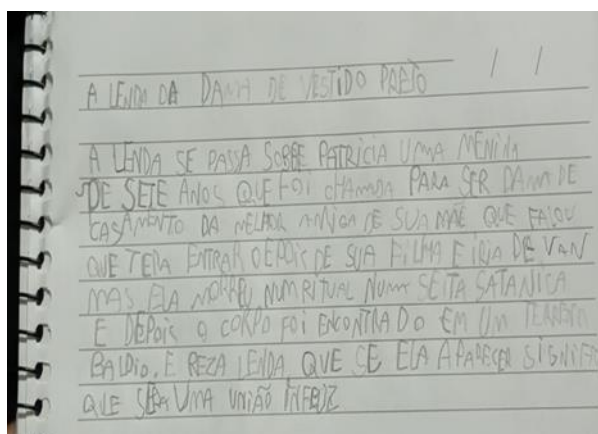 A LENDA DA DAMA DE VESTIDO PRETO / /
A LENDA SE PASSA SOBRE PATRICIA UMA MENINA
DE SETE ANOS QUE FOI CHAMADA PARA SER DAMA DE
CASAMENTO DA MELHOR AMIGA DE SUA MÃE QUE FALOU
QUE TERA ENTRAR DEPOIS DE SUA FILHA E IRIA DE VAN
MAS ELA MORREU NUM RITUAL NUMA SEITA SATANICA
E DEPOIS O CORPO FOI ENCONTRADO EM UM TERRENO
BALDIO. E REZA LENDA QUE SE ELA APARECER SIGNIFI
QUE SERA UMA UNIÃO INFELIZ